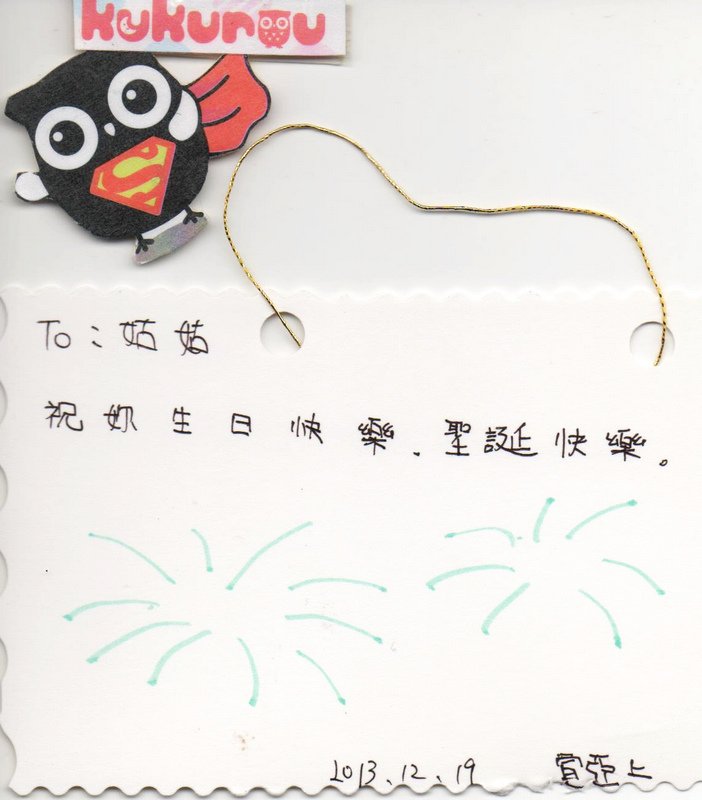 kukurou
To:姑姑
祝妳生日快樂.聖誕快樂。
2013.12.19 亞上